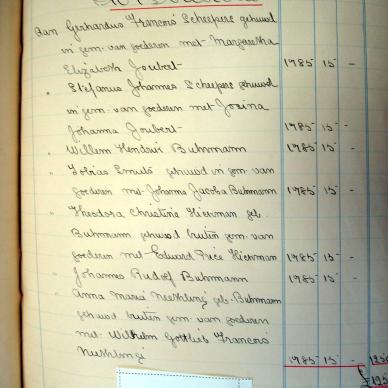 Aan Gerhardus Francois Scheepers gehuwd
in gem. van goederen met Margaretha
Elizabeth Joubert 1985 15 -
" Stefanus Johannes Scheepers gehuwd
in gem. van goederen met Josina
Johanna Joubert 1985 15 -
" Willem Hendrik Buhrmann 1985 15 -
" Tobias Smuts gehuwd in gem. van
goederen met Johanna Jacoba Buhrmann 1985 15 -
" Theodora Christina Hierman geb.
Buhrmann gehuwd buiten gem. van
goederen met Edward Price Hierman 1985 15 -
" Johannes Rudolf Buhrmann 1985 15 -
" Anna Maria geb. Buhrmann
gehuwd buiten gem. van goederen
met Wilhelm Gottlieb Francois
1985 15 -